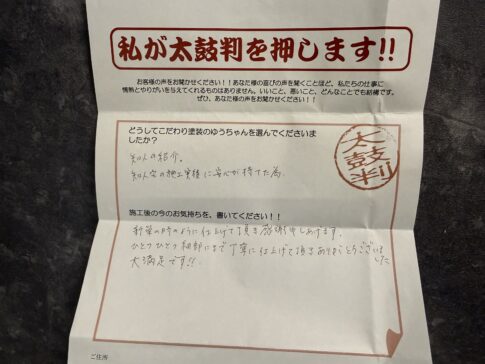 私が太鼓判を押します!!
お客様の声をお聞かせください！！あなた様の喜びの声を聞くことほど、私たちの仕事に
情熱とやりがいを与えてくれるものはありません。いいこと、悪いこと、どんなことでも結構です。
ぜひ、あなた様の声をお聞かせください！！
どうしてこだわり塗装のゆうちゃんを選んでくださいま
したか？
太鼓判!!
知人の紹介。
知人宅の施工実績に安心が持てた為。
施工後の今のお気持ちを、書いてください！！
新築の時のように仕上げて頂き感謝申しあげます。
ひとつひとつ細部にまで丁寧に仕上げて頂きありがとうございました
大満足です!!
ご住所